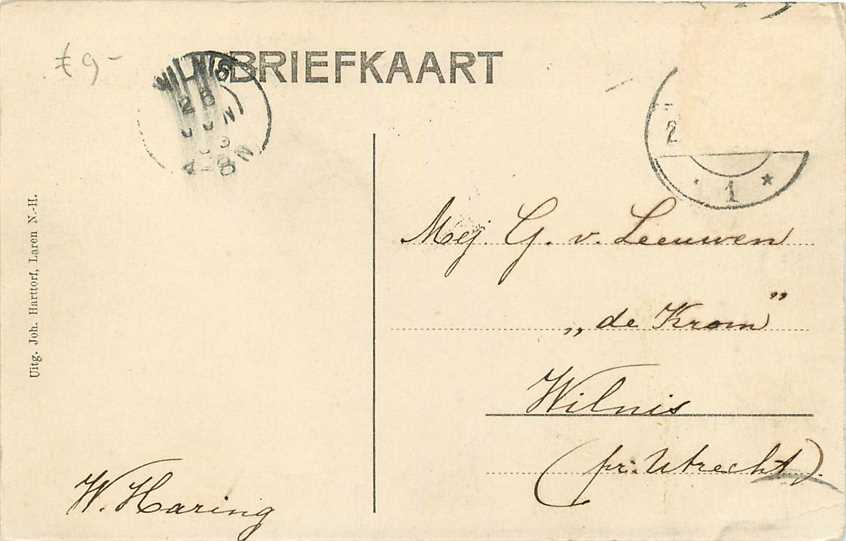 € 9-
BRIEFKAART
WILNIS
28
JUN
4-8N
2
1 *
Mej. G. v. Leeuwen
„de Krom”
Wilnis
(pr. Utrecht).
W. Haring
Uitg. Joh. Harttorf, Laren N.-H.